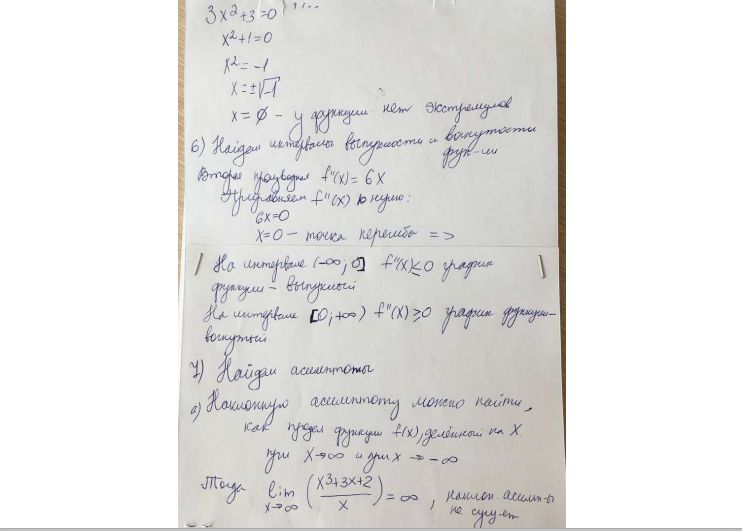 3x²+3=0
x²+1=0
x²=-1
x=±√-1
x=∅ - у функции нет экстремумов
6) Найдем интервалы выпуклости и вогнутости
фун-ии
Вторая производная f''(x)=6x
Приравняем f''(x) к нулю:
6x=0
x=0 - точка перегиба =>
На интервале (-∞; 0] f''(x)≤0 график
функции - выпуклый
На интервале [0; +∞) f''(x)≥0 график функции-
вогнутый
7) Найдем асимптоты
а) Наклонную асимптоту можно найти,
как предел функции f(x), делённый на x.
при x→∞ и при x→-∞
Тогда lim x→∞ (x³+3x+2 / x) = ∞, наклон. асимп-ы
не сущ-ет